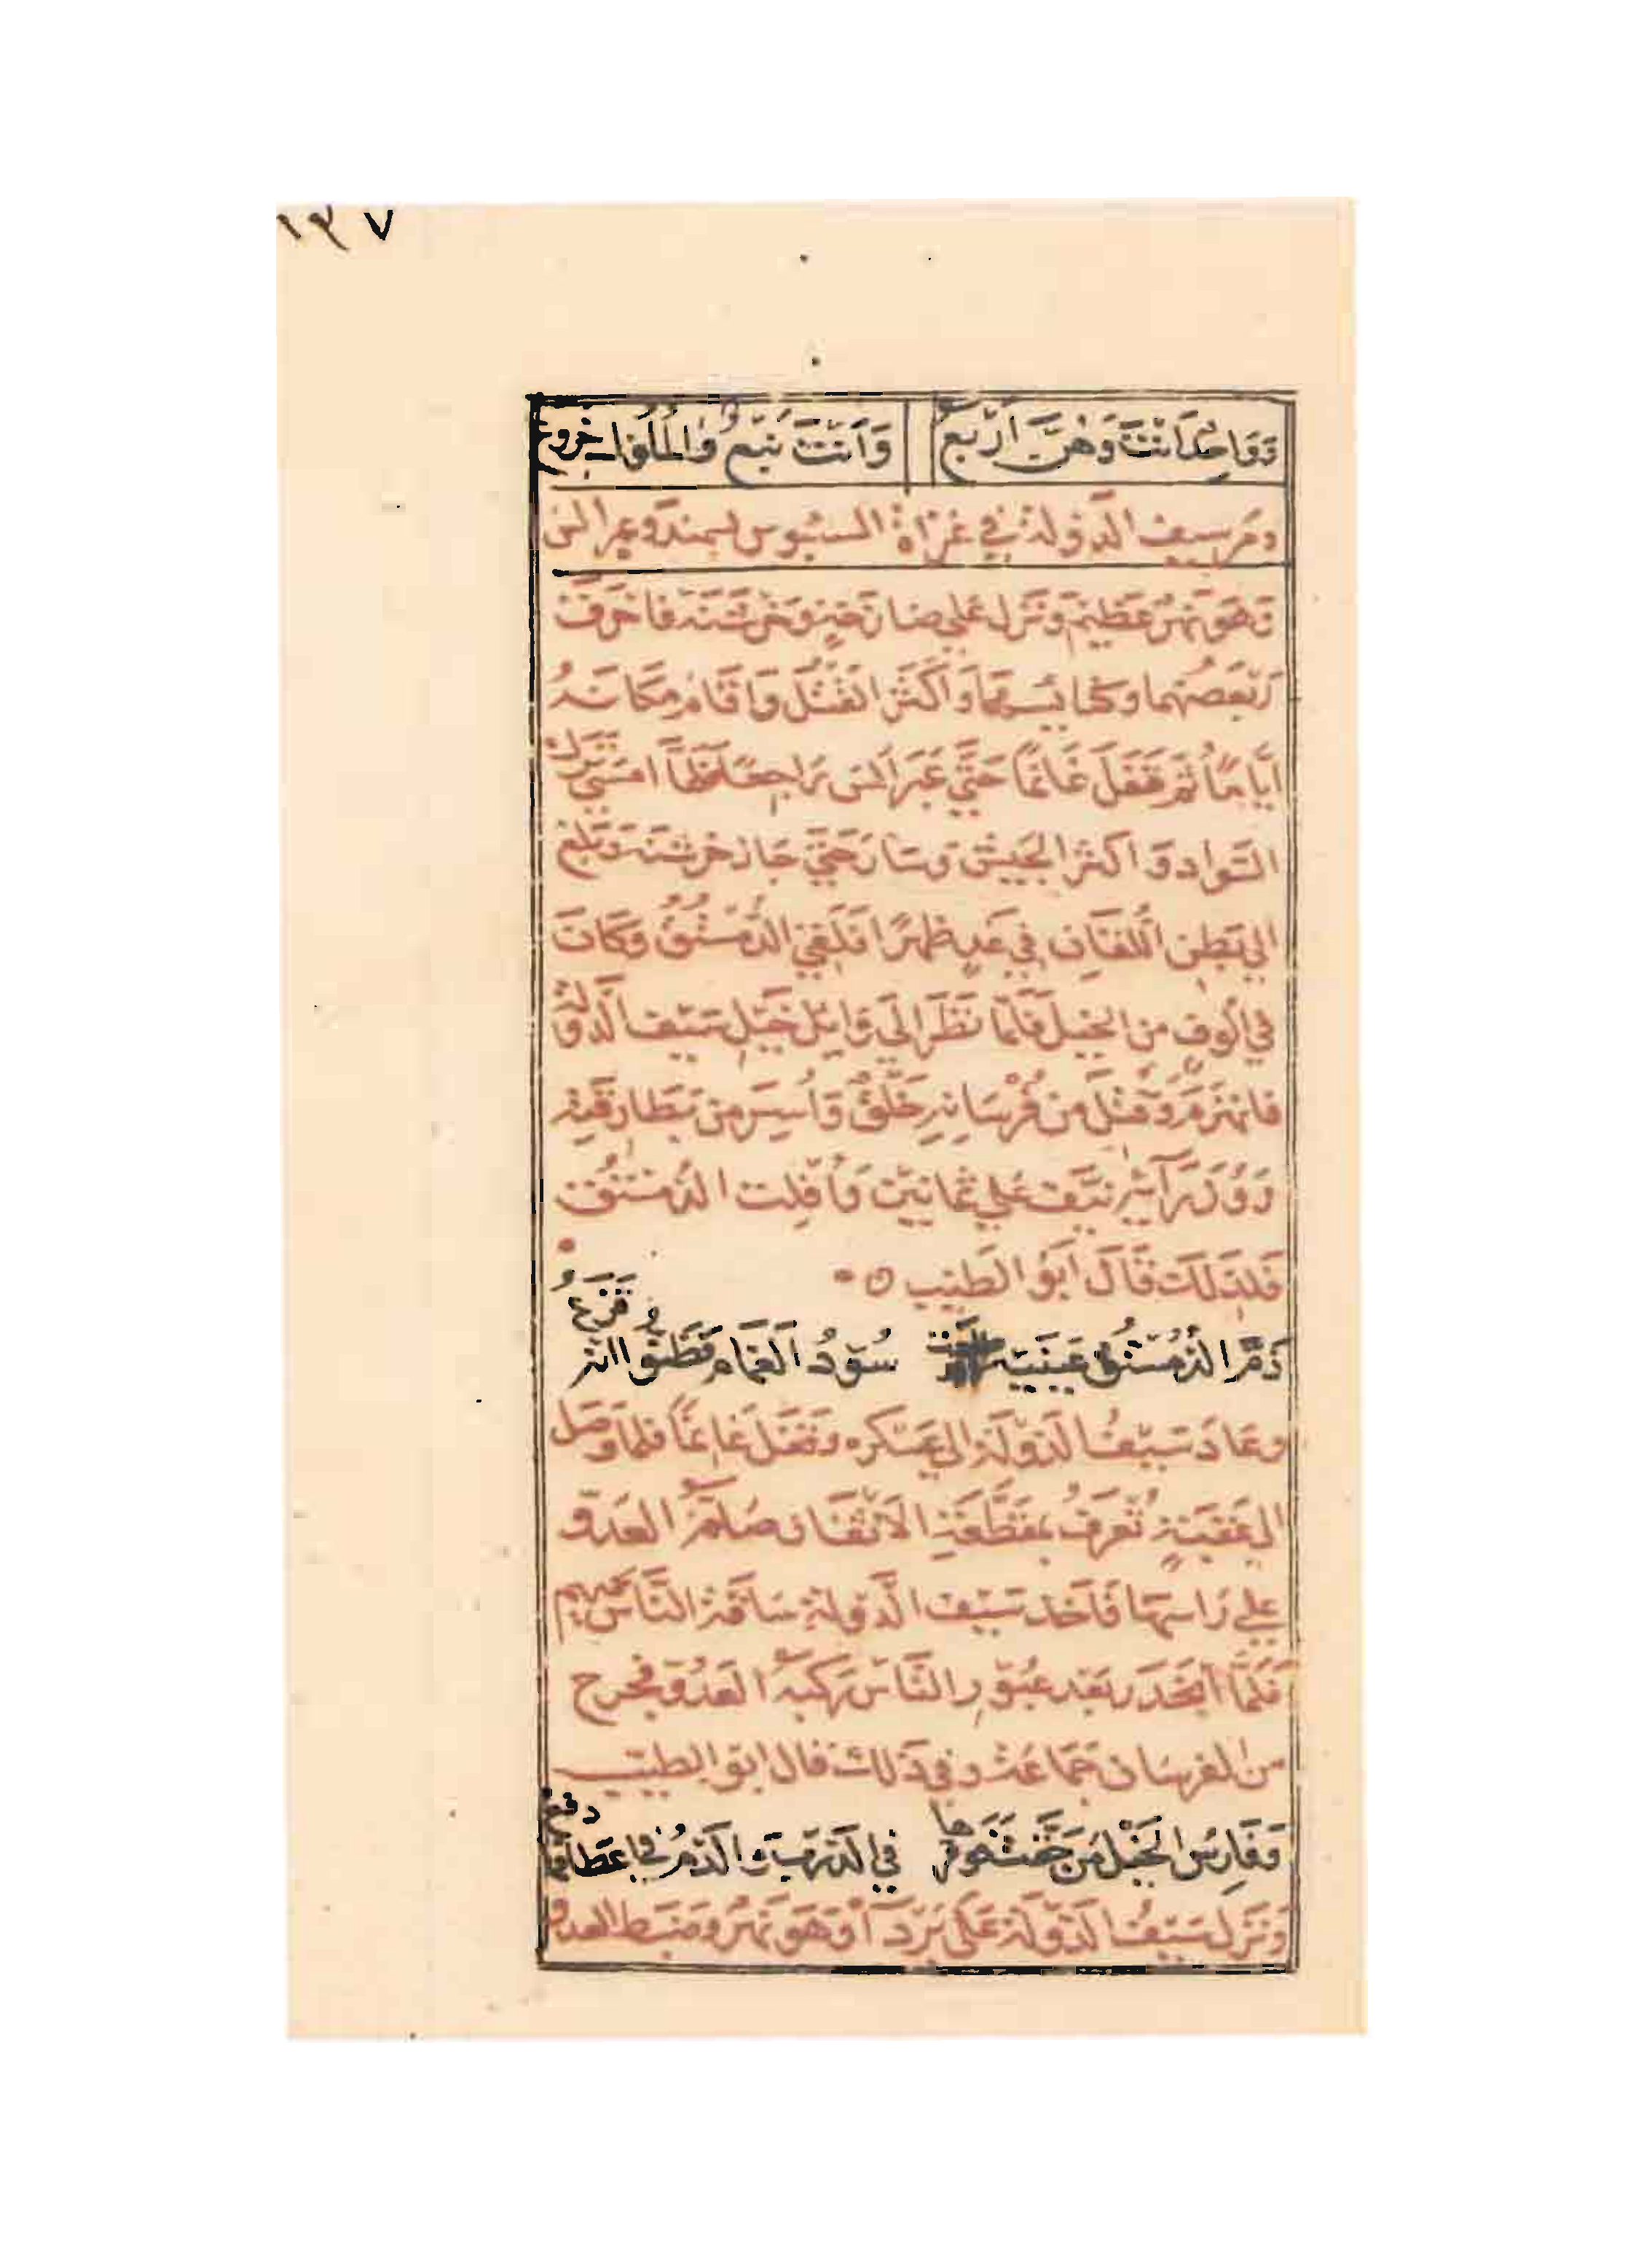 ١٣٧
وَوَاحِدًا أنتَ وَهُنَّ أَرْبَعُ وَأَنْتَ نَبْعٌ وَالمُلُوكُ خِرْوَعُ
ومَرَّ سيف الدَّولة في غزاة السنبوس بسمندو وعبر الس
وَهوَ نهرٌ عَظيم وَنَزل عَلى صارخة وَخَرشنة فاحرق
رَبَضهما وكنائسهما وَأكثر القتل وَأقام مكانه
أيّامًا ثم قفل غانمًا حتى عبر الس راجعًا فلمّا امسى ترك
السواد وَاكثر الجيش وسار حتى جاز خرشنة وَبلغ
الى بطن اللقان في غدٍ ظهرًا فلقي الدُّمستُقُ وكان
في ألوفٍ من الخيل فلمّا نظر إلى وايل خيل سيف الدولة
فانهزم وقتل من فُرسانه خلقٌ وأُسر من بطارقته
وزُرَاره نيّف على ثمانين وأفلت الدُّمستق
فلذلك قال أبو الطيب
ذَمَّ الدُّمستق عينيه سُودُ الغمام فظنوا انها قَزَعُ
وعاد سيفُ الدّولة الى عسكره وقفل غانمًا فلما وصل
الى عقبةٍ تُعرفُ بمقطعة الاثفار صافّه العدوّ
على رأسها فأخذ سيف الدّولة ساقة الناس يحميهم
فلمّا انحدر بعد عبور الناس ركبه العدو فجرح
من الفرسان جماعة وفي ذلك قال ابو الطيب
وَفارسُ الخيل من خفت فوقرها في الدرب والدم في أعطافها دفع
وَنزل سيفُ الدّولة على بردا وهو نهر وضبط العدو